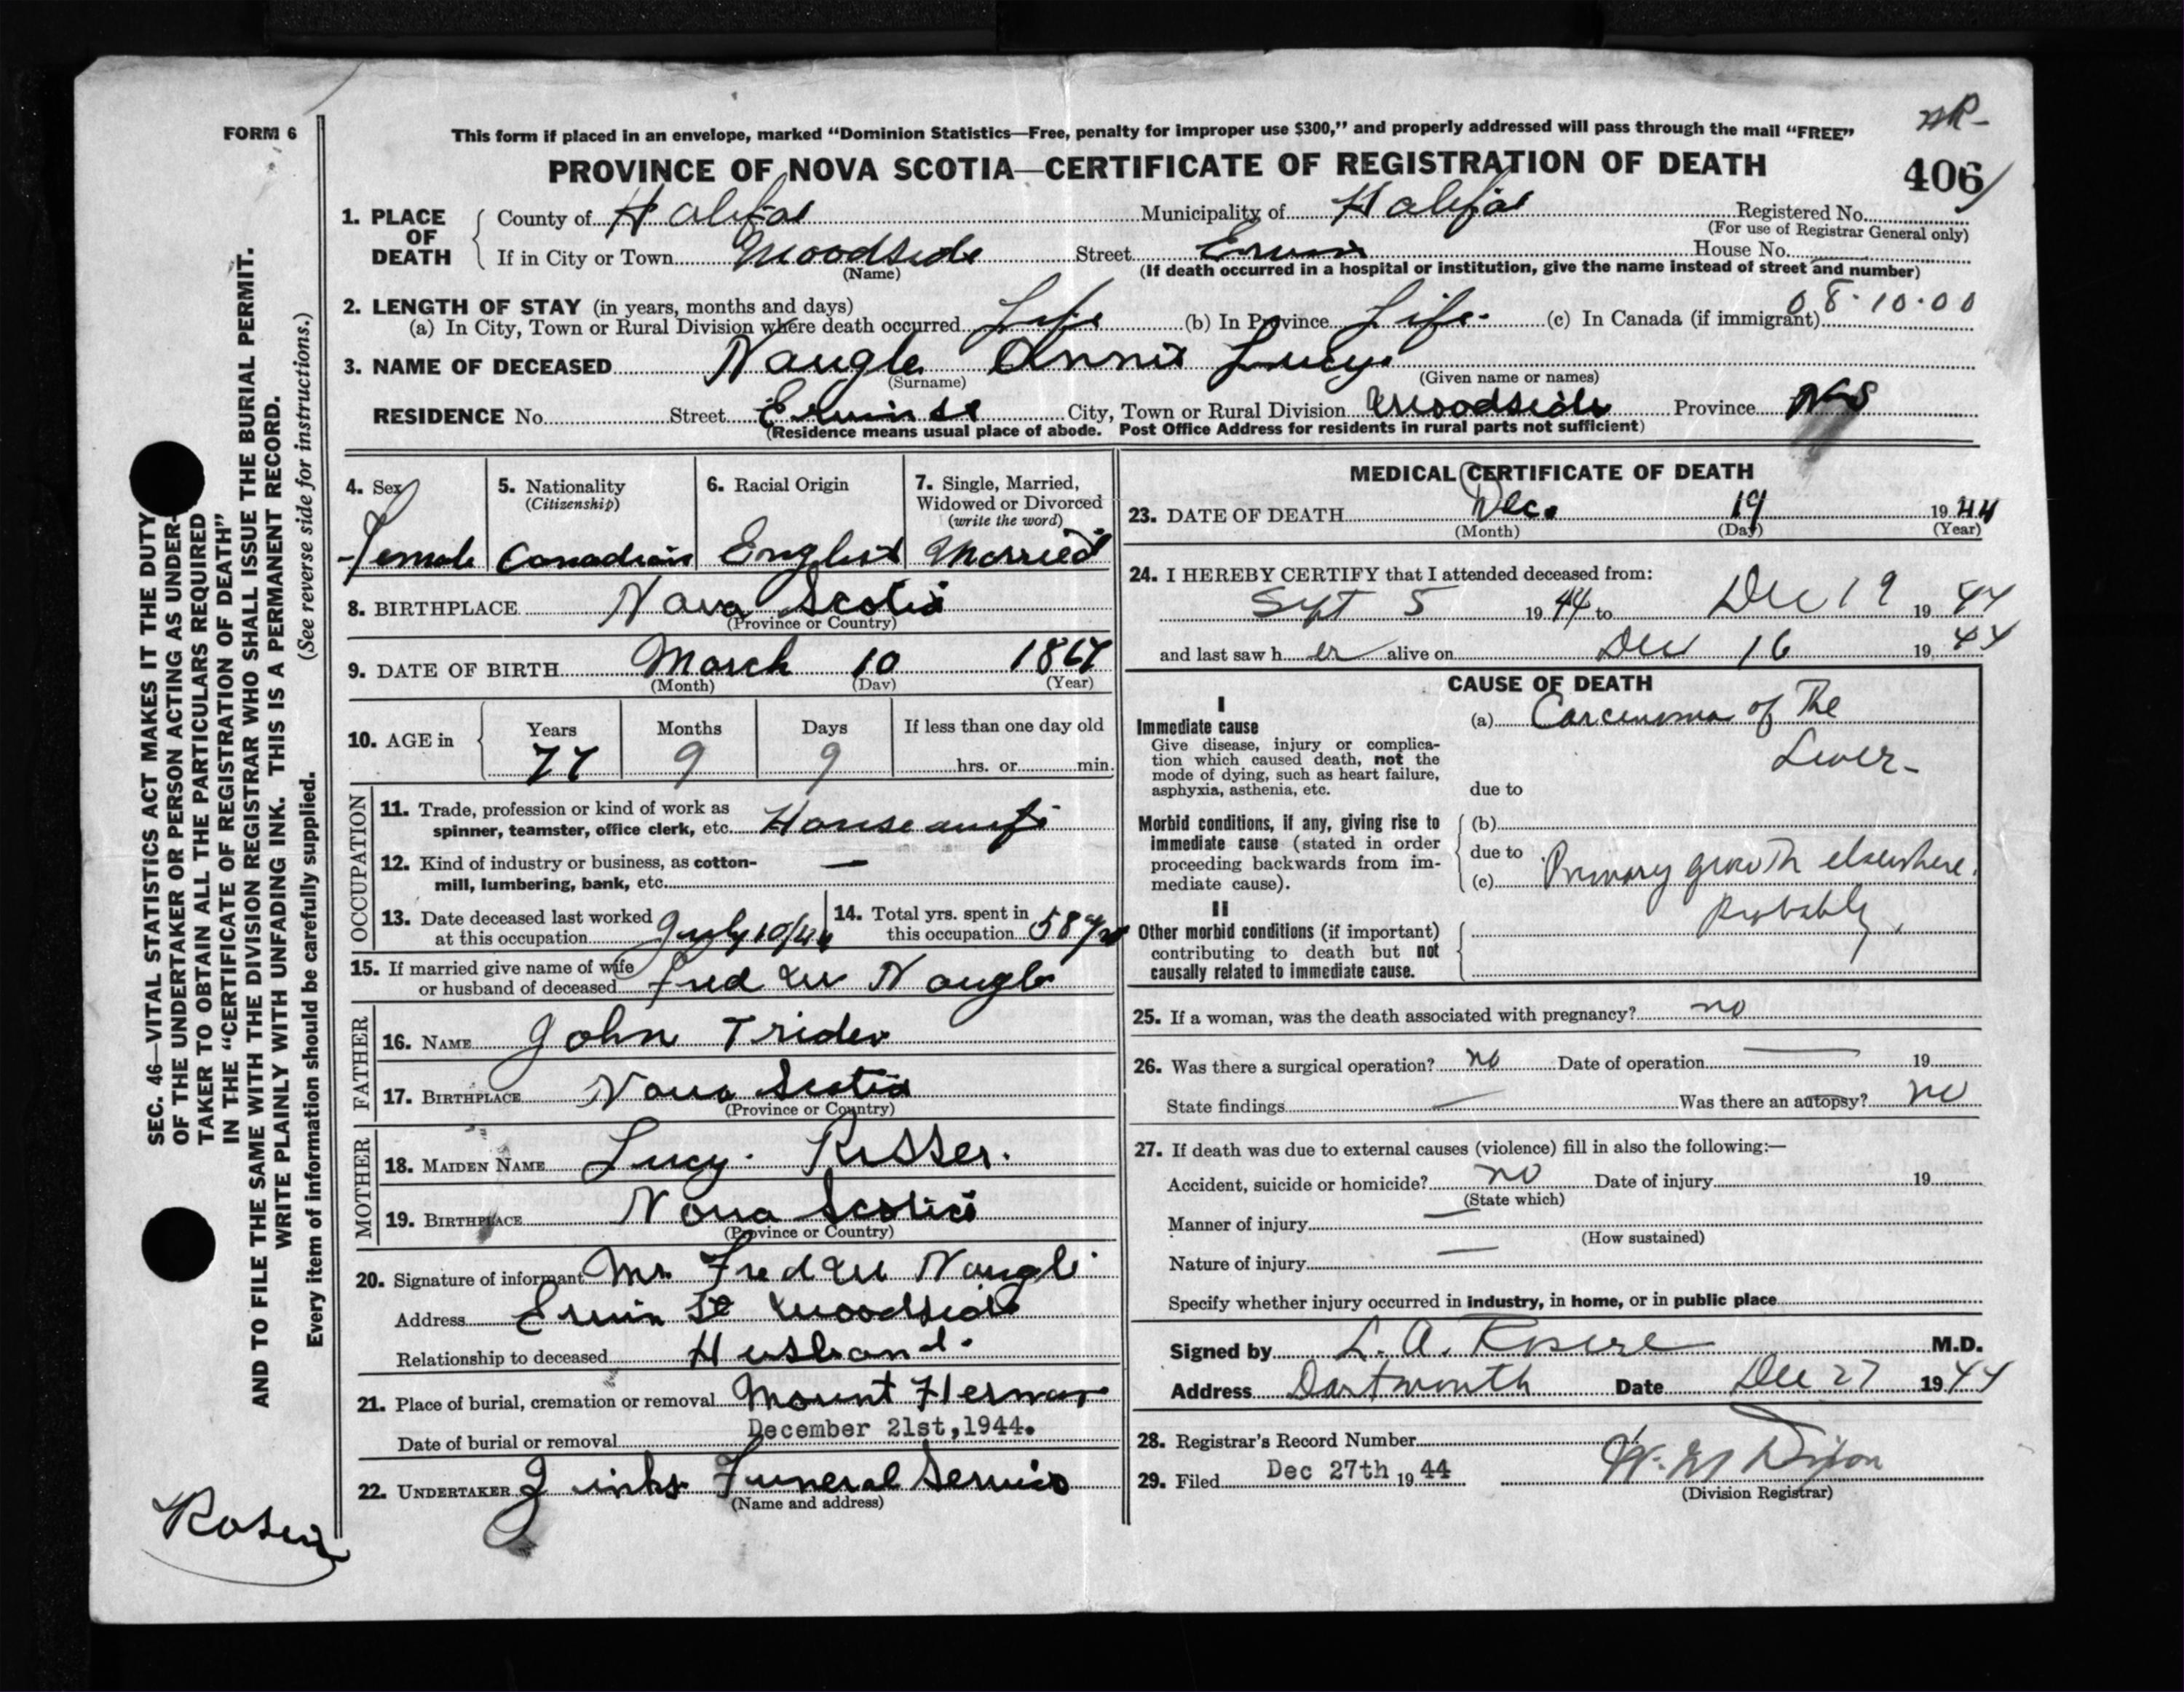 FORM 6
This form if placed in an envelope, marked "Dominion Statistics—Free, penalty for improper use $300," and properly addressed will pass through the mail "FREE"
PROVINCE OF NOVA SCOTIA—CERTIFICATE OF REGISTRATION OF DEATH
406
1. PLACE OF DEATH
County of Halifax Municipality of Halifax Registered No.
(For use of Registrar General only)
If in City or Town Woodside Street Erwin House No.
(Name) (If death occurred in a hospital or institution, give the name instead of street and number)
08.10.00
2. LENGTH OF STAY (in years, months and days)
(a) In City, Town or Rural Division where death occurred Life (b) In Province Life. (c) In Canada (if immigrant)
3. NAME OF DECEASED Naugle Annie Lucy
(Surname) (Given name or names)
RESIDENCE No. Street Erwin St City, Town or Rural Division Woodside Province NS
(Residence means usual place of abode. Post Office Address for residents in rural parts not sufficient)
4. Sex
Female
5. Nationality
(Citizenship)
Canadian
6. Racial Origin
English
7. Single, Married, Widowed or Divorced
(write the word)
Married
8. BIRTHPLACE Nova Scotia
(Province or Country)
9. DATE OF BIRTH March 10 1867
(Month) (Day) (Year)
10. AGE in
Years Months Days If less than one day old
77 9 9 hrs. or min.
OCCUPATION
11. Trade, profession or kind of work as
spinner, teamster, office clerk, etc. Housewife
12. Kind of industry or business, as cotton-
mill, lumbering, bank, etc. —
13. Date deceased last worked
at this occupation July 10/44
14. Total yrs. spent in
this occupation 58 yrs
15. If married give name of wife
or husband of deceased Fred Naugle
FATHER
16. NAME John Trider
17. BIRTHPLACE Nova Scotia
(Province or Country)
MOTHER
18. MAIDEN NAME Lucy. Risser.
19. BIRTHPLACE Nova Scotia
(Province or Country)
20. Signature of informant Mr. Fred Naugle
Address Erwin St Woodside
Relationship to deceased Husband.
21. Place of burial, cremation or removal Mount Herman
Date of burial or removal December 21st,1944.
22. UNDERTAKER Zinks Funeral Service
(Name and address)
MEDICAL CERTIFICATE OF DEATH
23. DATE OF DEATH Dec. 19 1944
(Month) (Day) (Year)
24. I HEREBY CERTIFY that I attended deceased from:
Sept 5 1944 to Dec 19 1944
and last saw her alive on Dec 16 1944
CAUSE OF DEATH
I
Immediate cause
Give disease, injury or complica-
tion which caused death, not the
mode of dying, such as heart failure,
asphyxia, asthenia, etc.
(a) Carcinoma of The
Liver-
due to
Morbid conditions, if any, giving rise to
immediate cause (stated in order
proceeding backwards from im-
mediate cause).
(b)
due to
(c) Primary growth elsewhere.
Probably
II
Other morbid conditions (if important)
contributing to death but not
causally related to immediate cause.
25. If a woman, was the death associated with pregnancy? no
26. Was there a surgical operation? no Date of operation — 19
State findings — Was there an autopsy? no
27. If death was due to external causes (violence) fill in also the following:—
Accident, suicide or homicide? no Date of injury 19
(State which)
Manner of injury —
(How sustained)
Nature of injury —
Specify whether injury occurred in industry, in home, or in public place
Signed by L. A. Rosere M.D.
Address Dartmouth Date Dec 27 1944
28. Registrar's Record Number
29. Filed Dec 27th 1944 Dixon
(Division Registrar)
SEC. 46—VITAL STATISTICS ACT MAKES IT THE DUTY
OF THE UNDERTAKER OR PERSON ACTING AS UNDER-
TAKER TO OBTAIN ALL THE PARTICULARS REQUIRED
IN THE "CERTIFICATE OF REGISTRATION OF DEATH"
AND TO FILE THE SAME WITH THE DIVISION REGISTRAR WHO SHALL ISSUE THE BURIAL PERMIT.
WRITE PLAINLY WITH UNFADING INK. THIS IS A PERMANENT RECORD.
Every item of information should be carefully supplied. (See reverse side for instructions.)